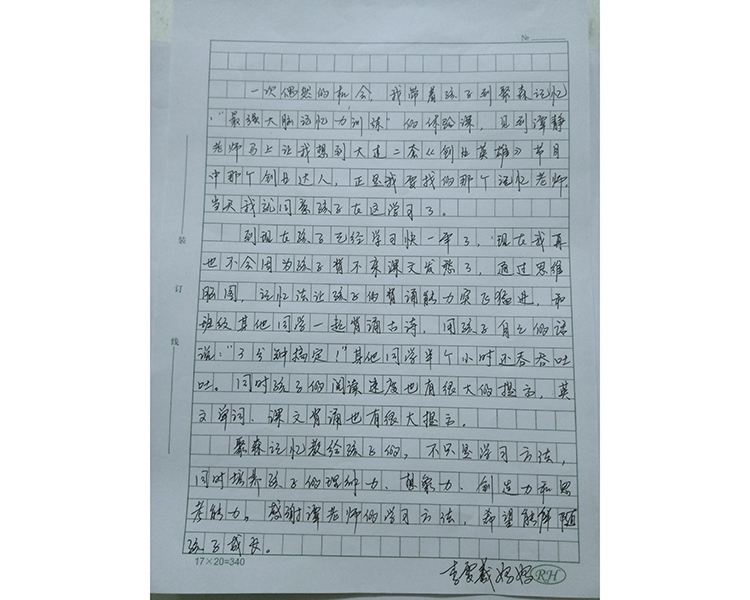 №
一次偶然的机会,我带着孩子到聚森记忆
"最强大脑记忆力训练"的体验课,见到谭静
老师马上让我想到大连二套《创业英雄》节目
中那个创业达人,正是我要找的那个记忆老师,
当天我就同意孩子在这学习了。
到现在孩子已经学习快一年了,现在我再
也不会因为孩子背不来课文发愁了,通过思维
脑图,记忆法让孩子的背诵能力突飞猛进,和
班级其他同学一起背诵古诗,用孩子自己的话
说:"3分钟搞定!"其他同学半个小时还吞吞吐
吐。同时孩子的阅读速度也有很大的提示,英
文单词、课文背诵也有很大提示。
聚森记忆教给孩子的,不只是学习方法,
同时培养孩子的理解力、想象力、创造力和思
考能力。感谢谭老师的学习方法,希望能伴随
孩子成长。
17×20=340
妈妈
RH
装
订
线